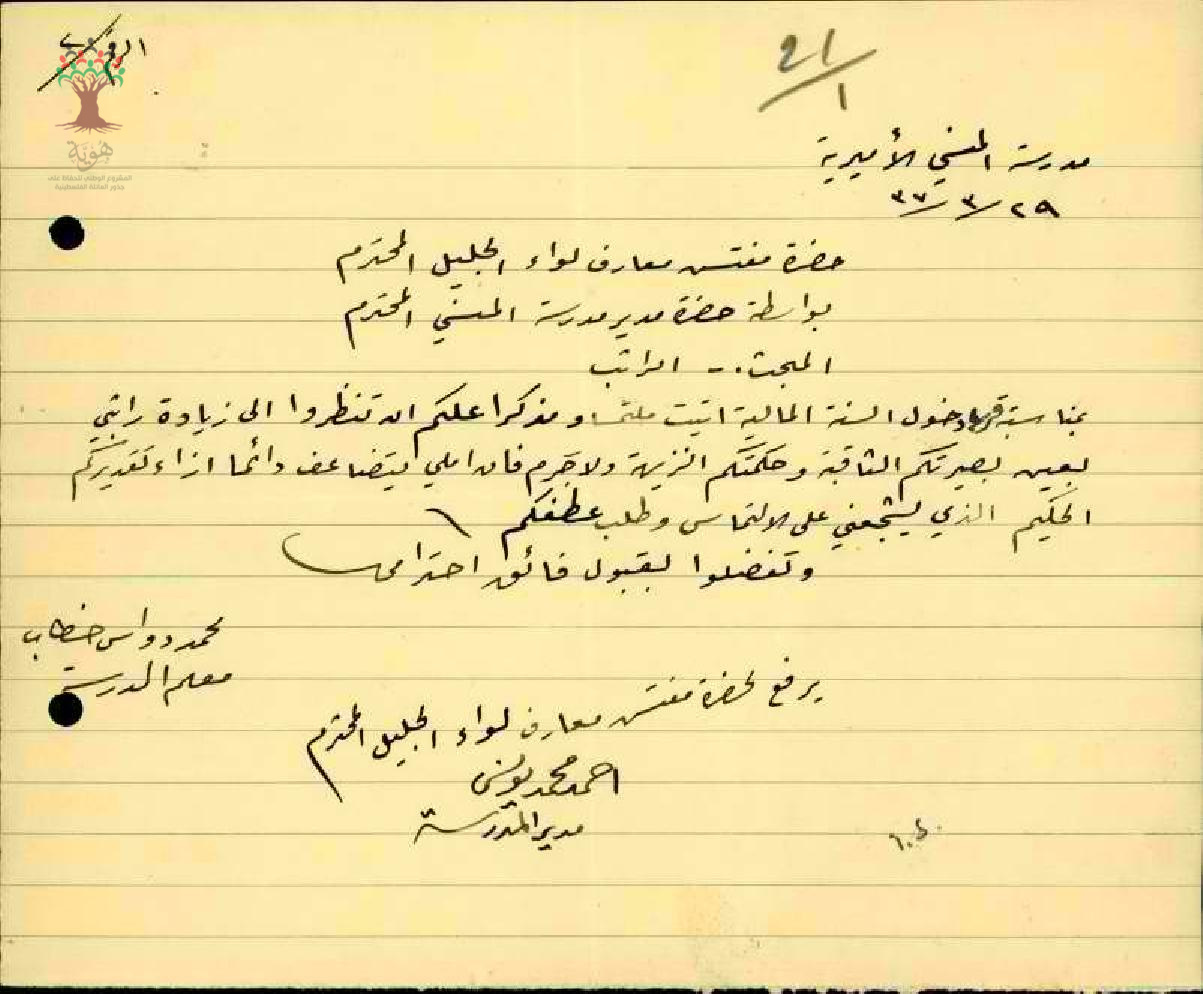 الرقم
21/1
هوية
المشروع الوطني للحفاظ على
جذور العائلة الفلسطينية
مدرسة المنسي الأميرية
٢٩/٣/٣٧
حضرة مفتش معارف لواء الجليل المحترم
بواسطة حضرة مدير مدرسة المنسي المحترم
المبحث:- الراتب
بمناسبة دخول السنة المالية اتيت ملتمسا ومذكرا علكم ان تنظروا الى زيادة راتبي
بعين بصيرتكم الثاقبة وحكمتكم النزيهة ولاجرم فان املي ليتضاعف دائما ازاء تقديركم
الحكيم الذي يشجعني على الالتماس وطلب عطفكم
وتفضلوا بقبول فائق احترامي
محمد دواس خطاب
معلم المدرسة
يرفع لحضرة مفتش معارف لواء الجليل المحترم
احمد محمد يونس
مدير المدرسة